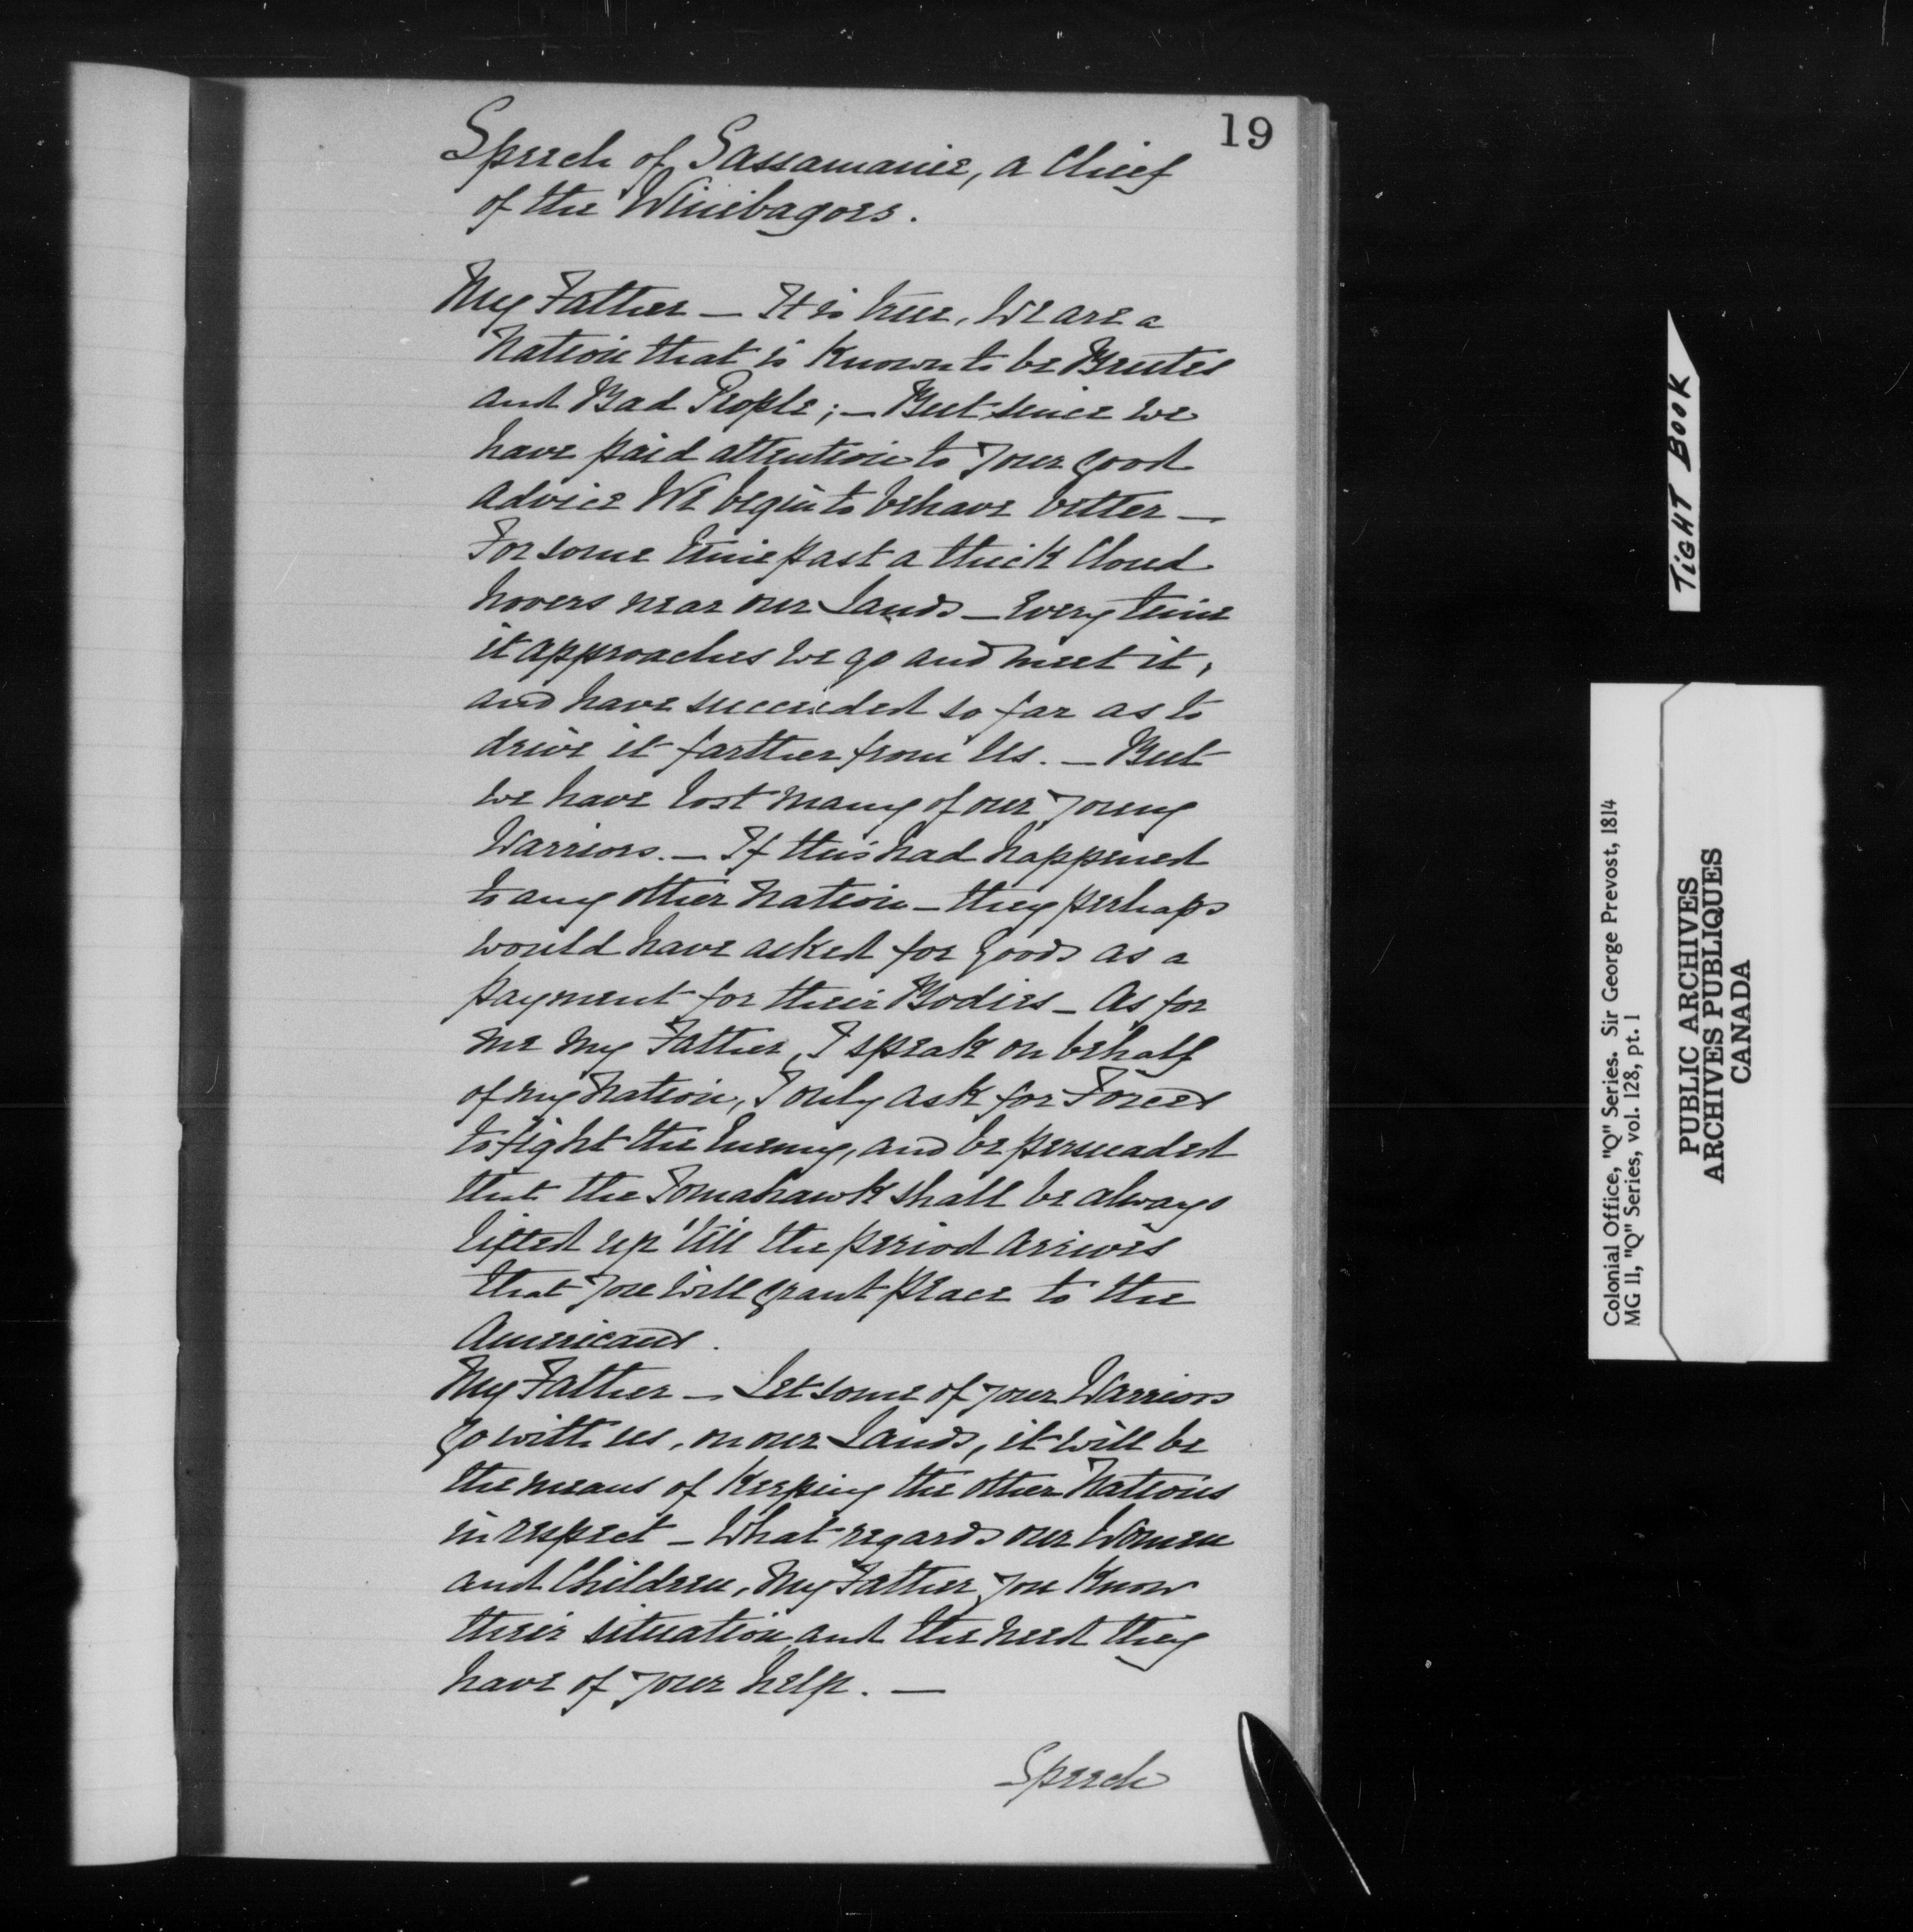 19
Speech of Sassamanie, a Chief
of the Winibagoes.
My Father — It is true, We are a
Nation that is known to be Brutes
and Bad People; — But since we
have paid attention to your good
advice We begin to behave better —
For some time past a thick Cloud
hovers near our Lands — Every time
it approaches we go and meet it,
and have succeeded so far as to
drive it farther from Us. — But
we have lost many of our young
Warriors. — If this had happened
to any other Nation — they perhaps
would have asked for goods as a
payment for their Bodies — As for
me My Father, I speak on behalf
of my Nation, I only ask for Forces
to fight the Enemy, and be persuaded
that the Tomahawk shall be always
lifted up 'till the period arrives
that you will grant peace to the
Americans.
My Father — Let some of your Warriors
go with us, on our Lands, it will be
the means of keeping the other Nations
in respect — What regards our Women
and Children, My Father, you know
their situation, and the need they
have of your help. —
Speech
TIGHT BOOK
Colonial Office, "Q" Series. Sir George Prevost, 1814
MG 11, "Q" Series, vol. 128, pt. 1
PUBLIC ARCHIVES
ARCHIVES PUBLIQUES
CANADA